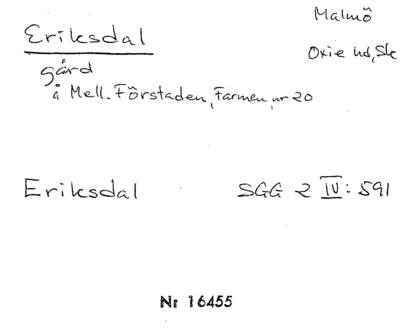 Malmö
Eriksdal
Oxie hd, Sk
gård
å Mell. Förstaden, Farmen, nr 20
Eriksdal SGG 2 IV: 591
Nr 16455